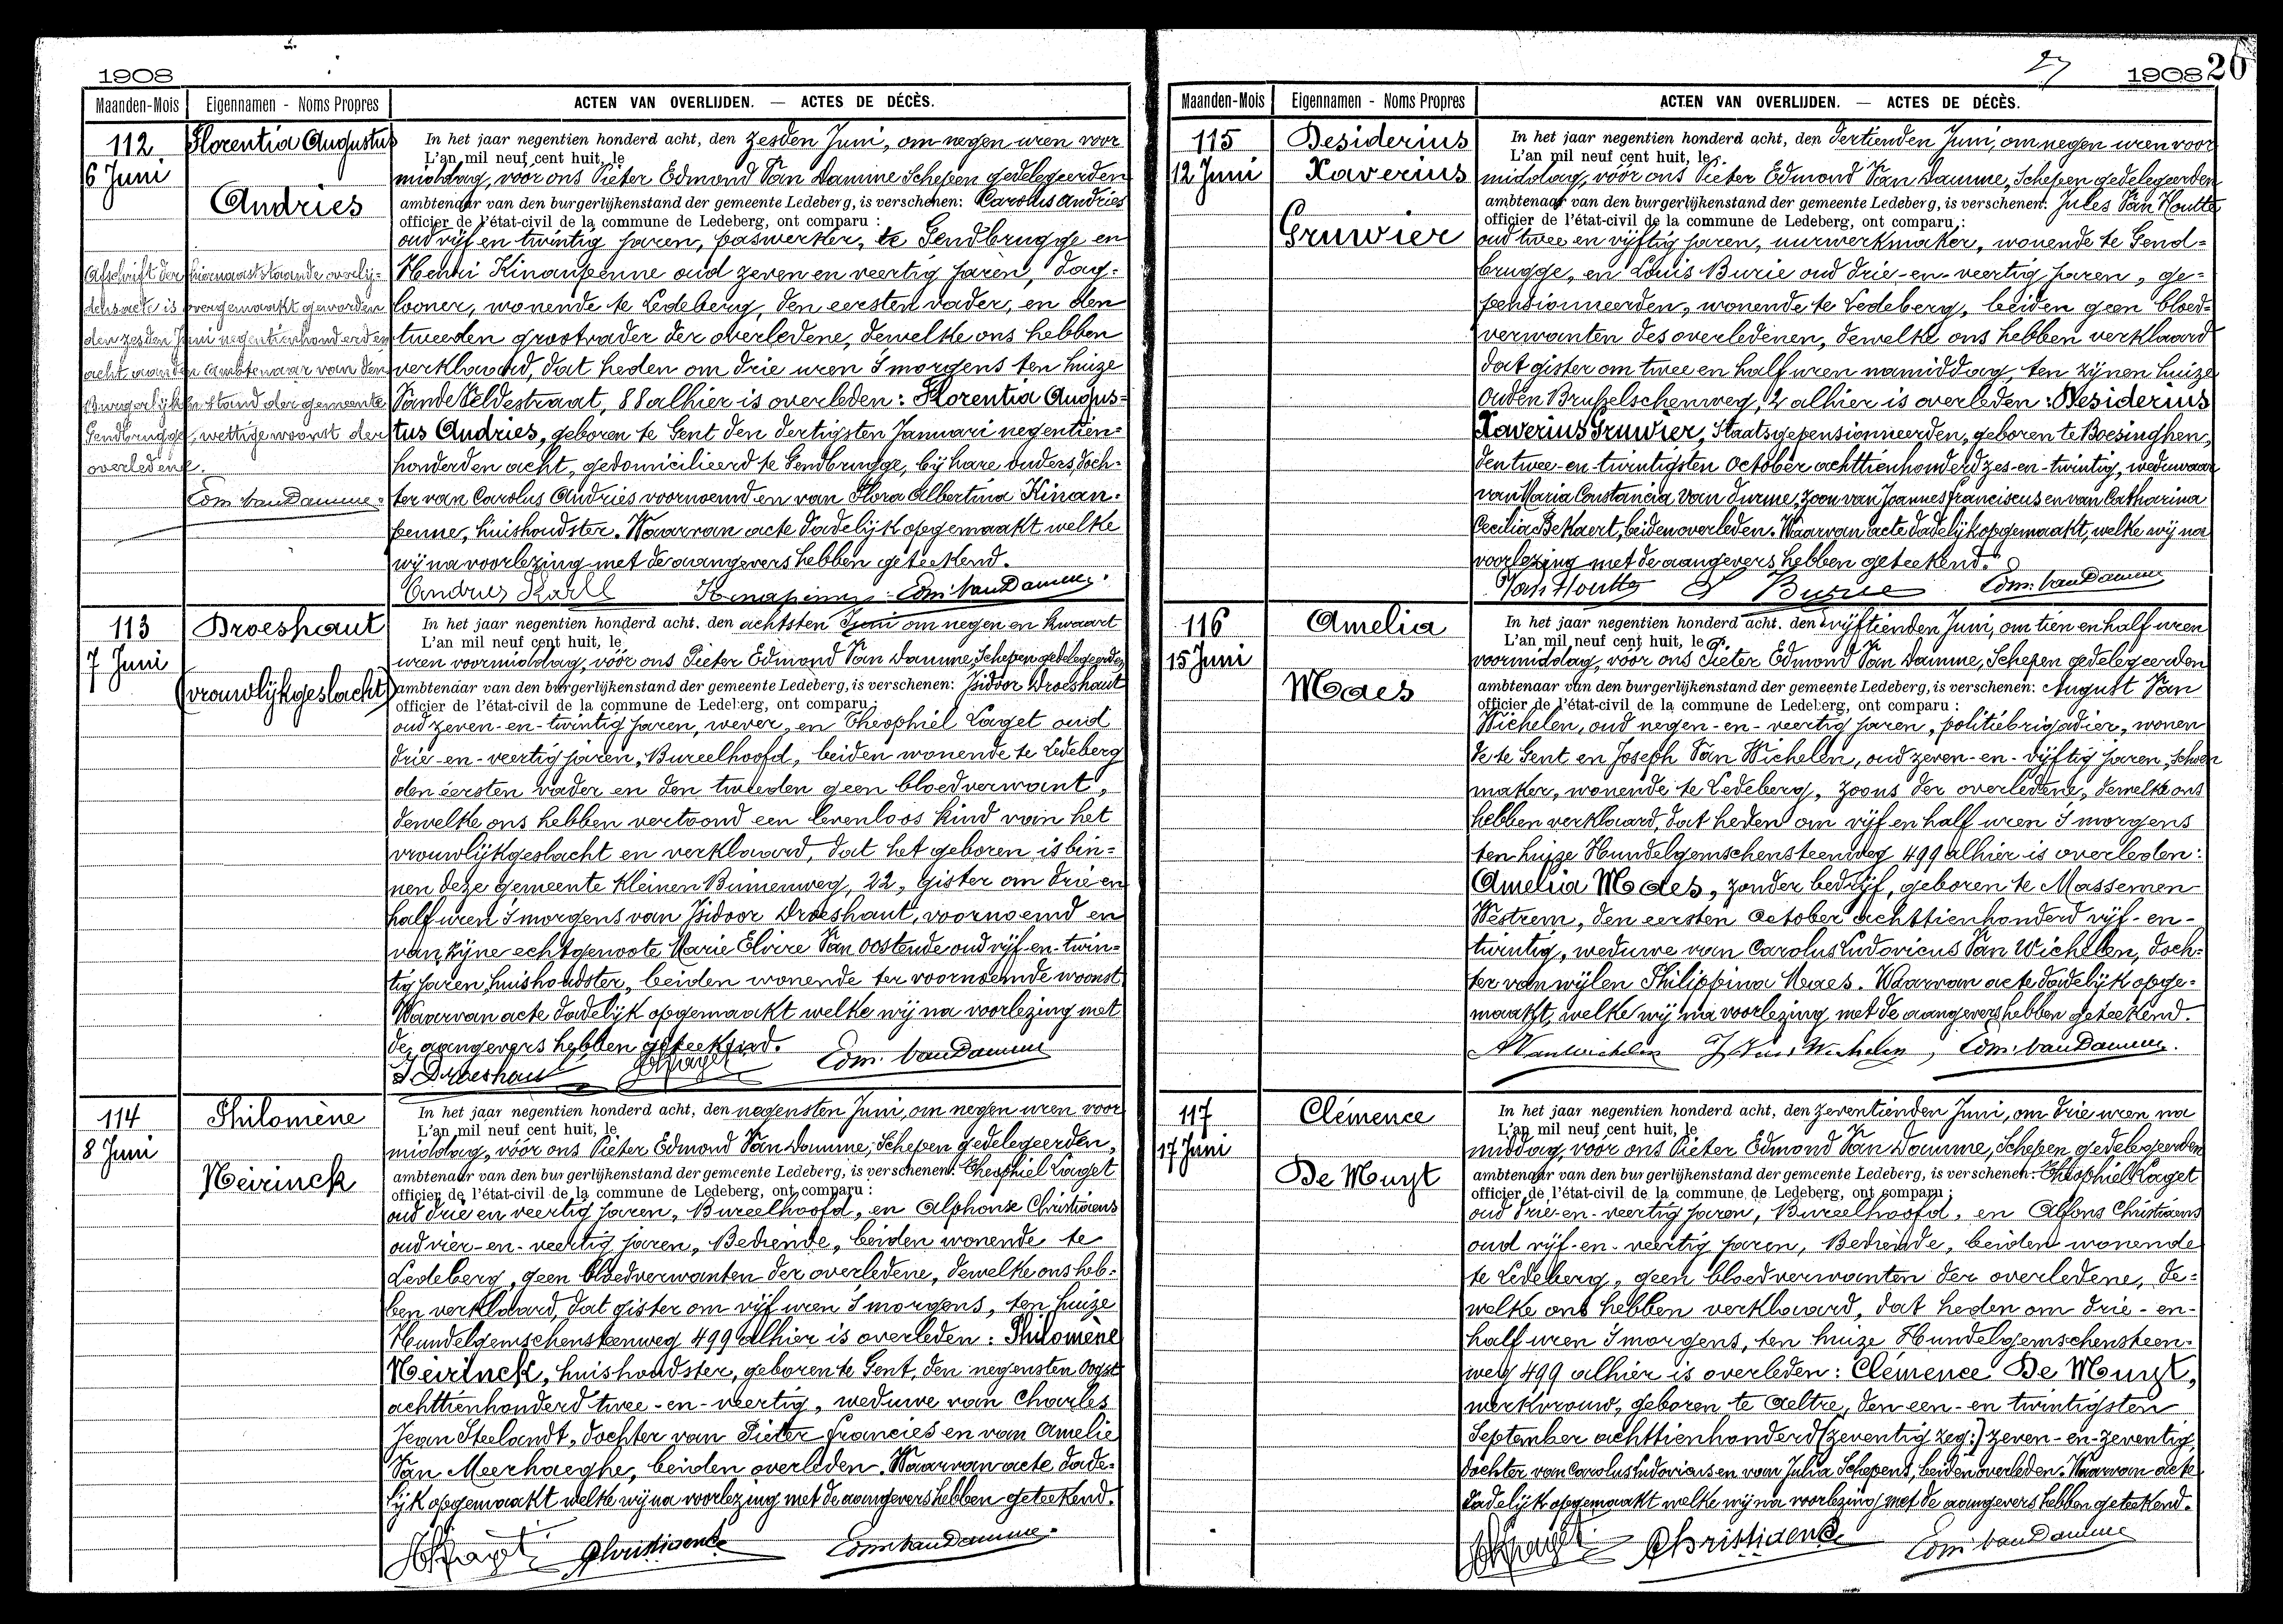 1908
Maanden-Mois Eigennamen - Noms Propres ACTEN VAN OVERLIJDEN. — ACTES DE DÉCÈS.
112
6 Juni
Florentia Augustus
Andries
Afschrift der hiernaaststaande overlij-
densacte is overgemaakt geworden
den zesden Juni negentienhonderd en
acht aan den Ambtenaar van den
Burgerlijken stand der gemeente
Gendbrugge, wettige woonst der
overledene.
Edm. Van Damme
In het jaar negentien honderd acht, den zesden Juni, om negen uren voor
L'an mil neuf cent huit, le
middag, vóór ons Pieter Edmond Van Damme Schepen gedelegeerden
ambtenaar van den burgerlijkenstand der gemeente Ledeberg, is verschenen: Carolus Andries
officier de l'état-civil de la commune de Ledeberg, ont comparu :
oud vijf en twintig jaren, paswerker, te Gendbrugge en
Henri Kinaupenne oud zeven en veertig jaren, dag-
looner, wonende te Ledeberg, den eersten vader, en den
tweeden grootvader der overledene, dewelke ons hebben
verklaard, dat heden om drie uren 's morgens ten huize
Vande Veldestraat, 88 alhier is overleden: Florentia Augus-
tus Andries, geboren te Gent den dertigsten Januari negentien-
honderd en acht, gedomicilieerd te Gendbrugge, bij hare ouders, doch-
ter van Carolus Andries voornoemd en van Flora Albertina Kinau-
penne, huishoudster. Waarvan acte dadelijk opgemaakt welke
wij na voorlezing met de aangevers hebben geteekend.
Andries Karel Edm. Van Damme
113
7 Juni
Droeshaut
(vrouwlijkgeslacht)
In het jaar negentien honderd acht, den achtsten Juni om negen en kwaart
L'an mil neuf cent huit, le
uren voormiddag, vóór ons Pieter Edmond Van Damme, Schepen gedelegeerden
ambtenaar van den burgerlijkenstand der gemeente Ledeberg, is verschenen: Isidoor Droeshaut
officier de l'état-civil de la commune de Ledeberg, ont comparu :
oud zeven-en-twintig jaren, wever, en Theophiel Laget oud
drie-en-veertig jaren, Bureelhoofd, beiden wonende te Ledeberg
den eersten vader en den tweeden geen bloedverwant,
dewelke ons hebben vertoond een levenloos kind van het
vrouwlijkgeslacht en verklaard, dat het geboren is bin-
nen deze gemeente Kleinen Binnenweg, 22, gister om drie en
half uren 's morgens van Isidoor Droeshaut, voornoemd en
van zijne echtgenoote Marie Elvire Van Oostende oud vijf-en-twin-
tig jaren, huishoudster, beiden wonende ter voornoemde woonst
Waarvan acte dadelijk opgemaakt welke wij na voorlezing met
de aangevers hebben geteekend.
I. Droeshaut Edm. Van Damme
114
8 Juni
Philomène
Neirinck
In het jaar negentien honderd acht, den negensten Juni, om negen uren voor
L'an mil neuf cent huit, le
middag, vóór ons Pieter Edmond Van Damme, Schepen gedelegeerden,
ambtenaar van den burgerlijkenstand der gemeente Ledeberg, is verschenen: Theophiel Laget
officier de l'état-civil de la commune de Ledeberg, ont comparu :
oud drie en veertig jaren, Bureelhoofd, en Alphonse Christiaens
oud vier-en-veertig jaren, Bediende, beiden wonende te
Ledeberg, geen bloedverwanten der overledene, dewelke ons heb-
ben verklaard, dat gister om vijf uren 's morgens, ten huize
Hundelgemschensteenweg 499 alhier is overleden: Philomène
Neirinck, huishoudster, geboren te Gent, den negensten Oogst
achttienhonderd twee-en-veertig, weduwe van Charles
Jean Steelandt, dochter van Pieter Francies en van Amelie
Van Meerhaeghe, beiden overleden. Waarvan acte dade-
lijk opgemaakt welke wij na voorlezing met de aangevers hebben geteekend.
Christiaens Edm. Van Damme
27 1908 26
Maanden-Mois Eigennamen - Noms Propres ACTEN VAN OVERLIJDEN. — ACTES DE DÉCÈS.
115
12 Juni
Desiderius
Xaverius
Gruwier
In het jaar negentien honderd acht, den dertienden Juni, om negen uren voor
L'an mil neuf cent huit, le
middag, vóór ons Pieter Edmond Van Damme, Schepen gedelegeerden
ambtenaar van den burgerlijkenstand der gemeente Ledeberg, is verschenen: Jules Van Houtte
officier de l'état-civil de la commune de Ledeberg, ont comparu :
oud twee en vijftig jaren, uurwerkmaker, wonende te Gend-
brugge, en Louis Burie oud drie-en-veertig jaren, ge-
pensionneerden, wonende te Ledeberg, beiden geen bloed-
verwanten des overledenen, dewelke ons hebben verklaard
dat gister om twee en half uren namiddag, ten zijnen huize
Ouden Brusselschenweg, 2 alhier is overleden: Desiderius
Xaverius Gruwier, Staatsgepensionneerden, geboren te Boesinghen,
den twee-en-twintigsten October achttienhonderd zes-en-twintig, weduwaar
van Maria Constancia Van Durme, zoon van Joannes Franciscus en van Catharina
Cecilia Bekaert, beiden overleden. Waarvan acte dadelijk opgemaakt, welke wij na
voorlezing met de aangevers hebben geteekend.
Van Houtte L Burie Edm. Van Damme
116
15 Juni
Amelia
Maes
In het jaar negentien honderd acht, den vijftienden Juni, om tien en half uren
L'an mil neuf cent huit, le
voormiddag, vóór ons Pieter Edmond Van Damme, Schepen gedelegeerden
ambtenaar van den burgerlijkenstand der gemeente Ledeberg, is verschenen: August Van
officier de l'état-civil de la commune de Ledeberg, ont comparu :
Wichelen, oud negen-en-veertig jaren, politiebrigadier, wonen
de te Gent en Joseph Van Wichelen, oud zeven-en-vijftig jaren, schoen
maker, wonende te Ledeberg, zoons der overledene, dewelke ons
hebben verklaard, dat heden om vijf en half uren 's morgens
ten huize Hundelgemschensteenweg 499 alhier is overleden:
Amelia Maes, zonder bedrijf, geboren te Massemen
Westrem, den eersten October achttienhonderd vijf-en-
twintig, weduwe van Carolus Ludovicus Van Wichelen, doch-
ter van wijlen Philippina Maes. Waarvan acte dadelijk opge-
maakt, welke wij na voorlezing met de aangevers hebben geteekend.
A Vanwichelen J Van Wichelen, Edm. Van Damme.
117
17 Juni
Clémence
De Muyt
In het jaar negentien honderd acht, den zeventienden Juni, om drie uren na
L'an mil neuf cent huit, le
middag, vóór ons Pieter Edmond Van Damme, Schepen gedelegeerden
ambtenaar van den burgerlijkenstand der gemeente Ledeberg, is verschenen: Theophiel Laget
officier de l'état-civil de la commune de Ledeberg, ont comparu :
oud drie-en-veertig jaren, Bureelhoofd, en Alfons Christiaens
oud vijf-en-veertig jaren, Bediende, beiden wonende
te Ledeberg, geen bloedverwanten der overledene, de-
welke ons hebben verklaard, dat heden om drie-en-
half uren 's morgens, ten huize Hundelgemschensteen-
weg 499 alhier is overleden: Clémence De Muyt,
werkvrouw, geboren te Aeltre, den een-en twintigsten
September achttienhonderd (zeventig zeg:) zeven-en-zeventig,
dochter van Carolus Ludovicus en van Julia Schepens, beiden overleden. Waarvan acte
dadelijk opgemaakt welke wij na voorlezing met de aangevers hebben geteekend.
Christiaens Edm. Van Damme